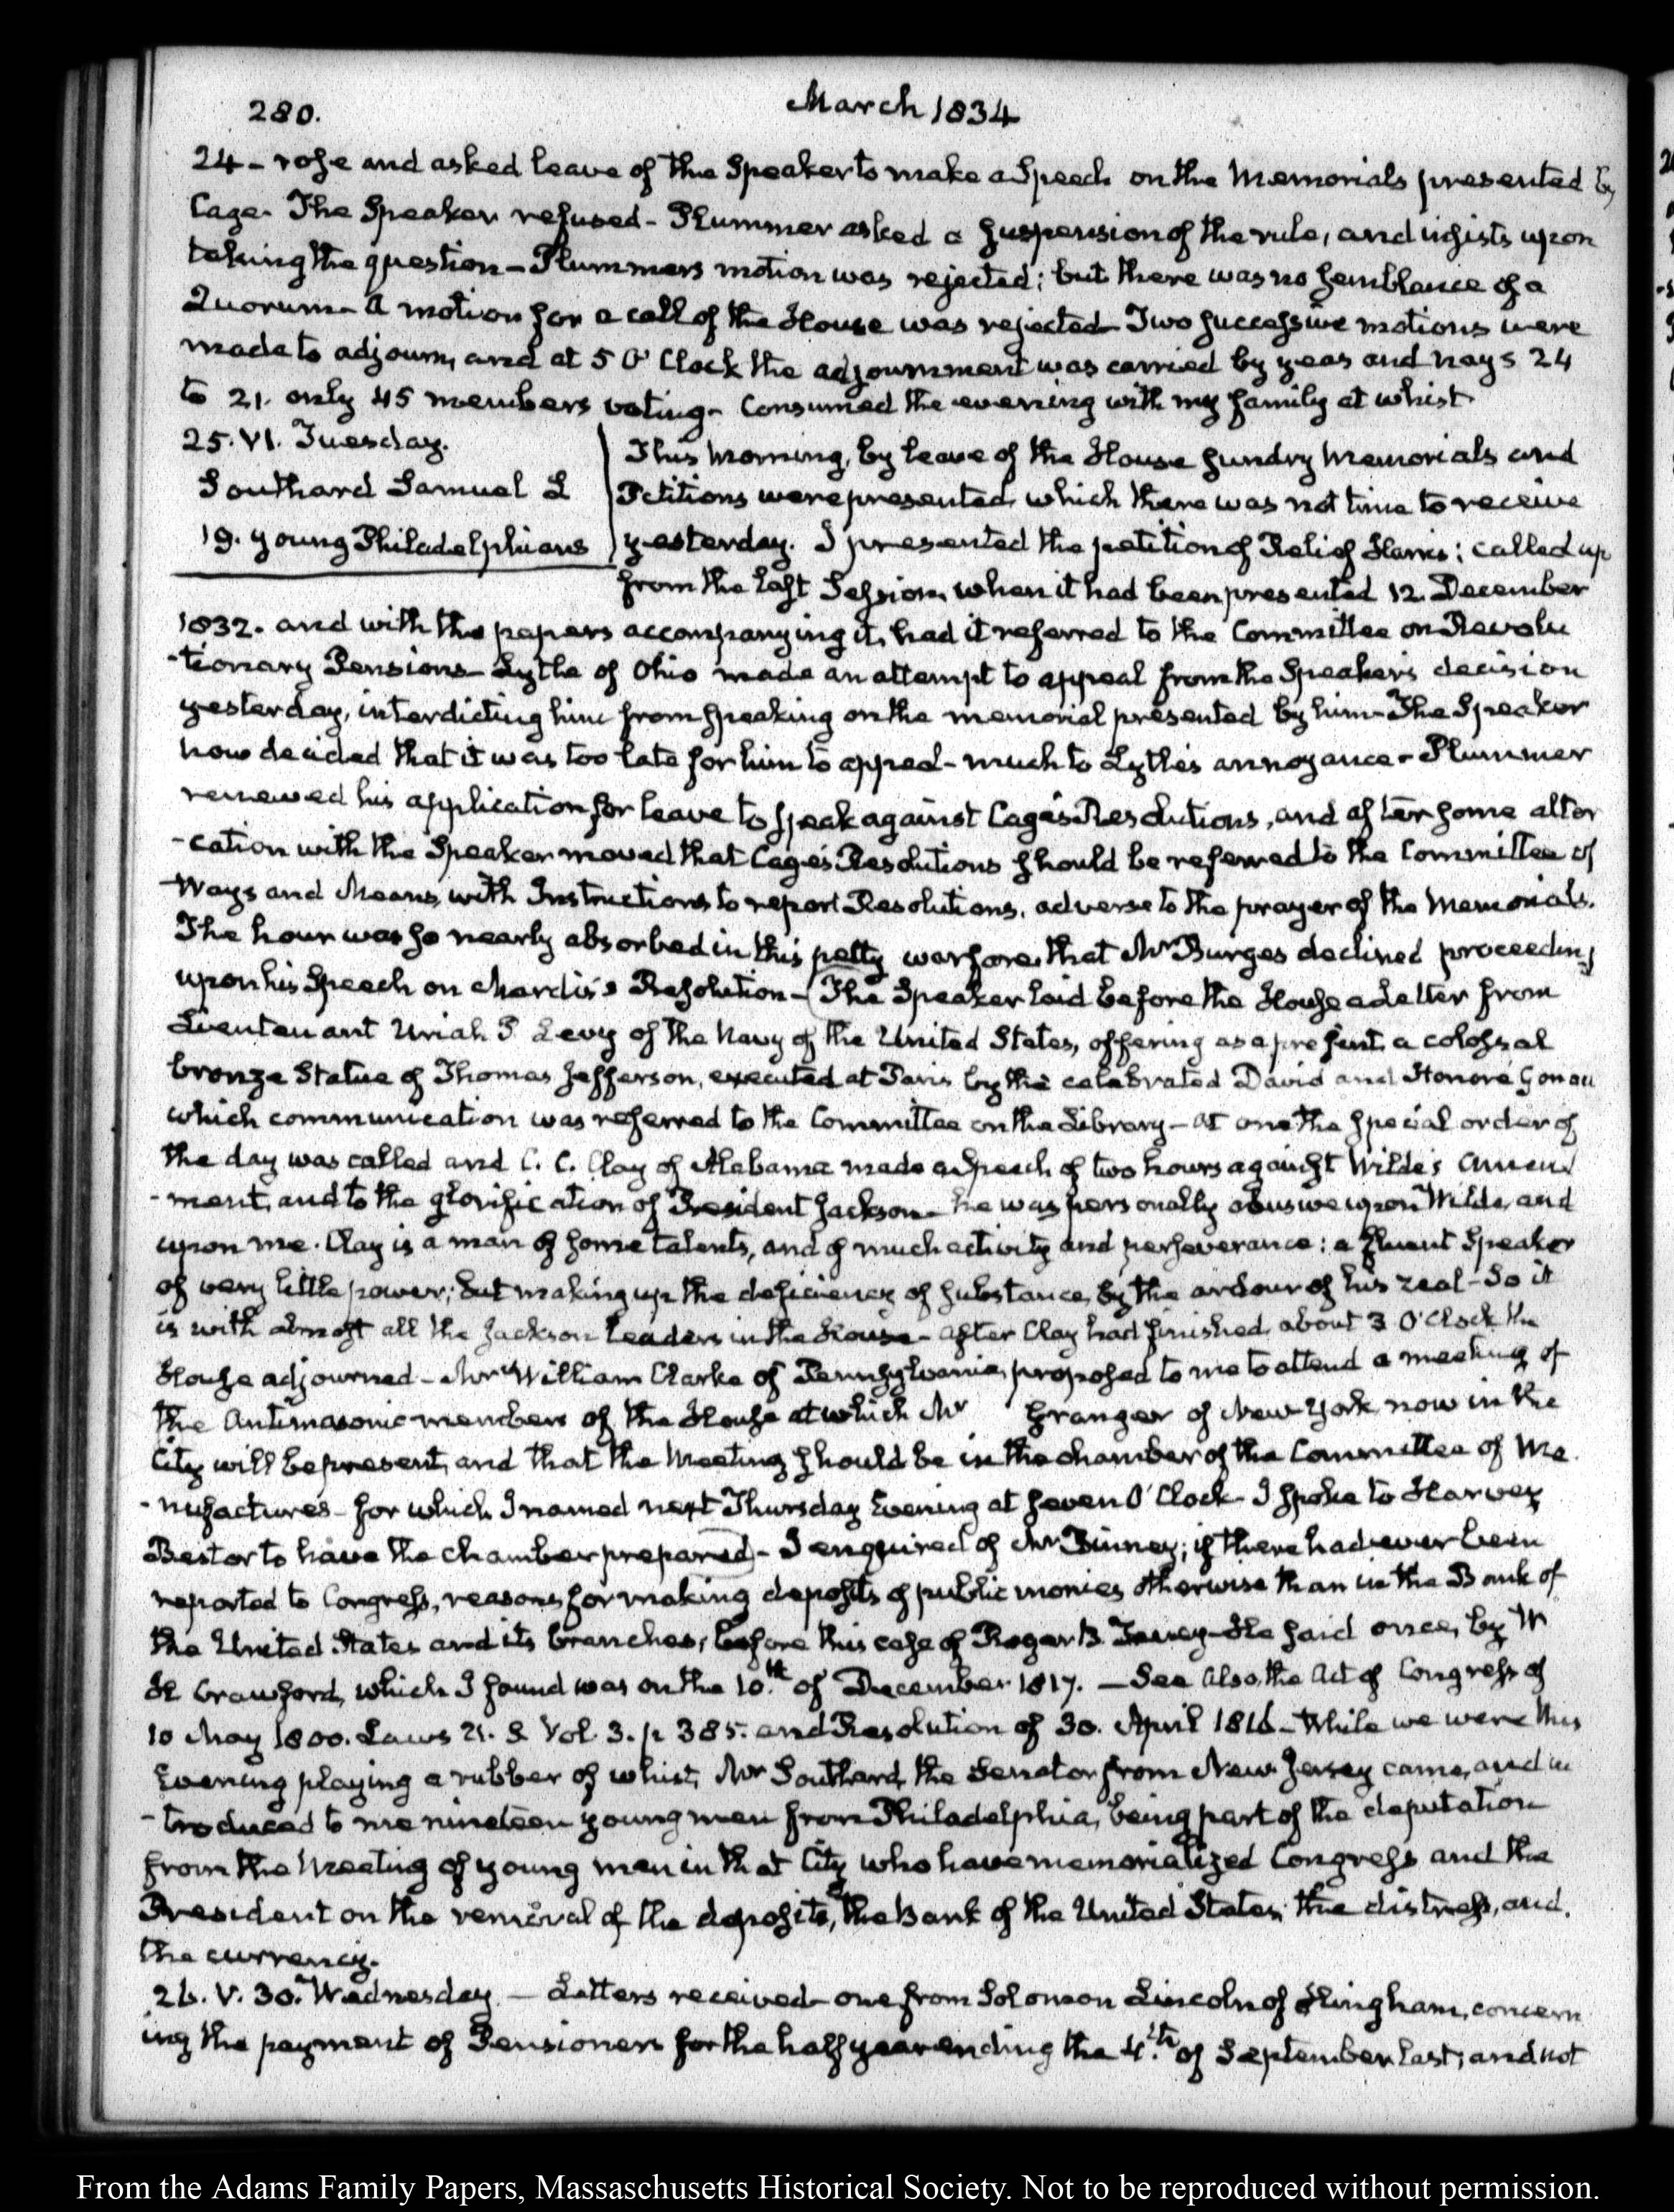 280.
March 1834
24 - rose and asked leave of the Speaker to make a Speech on the Memorials presented by
Cage. The Speaker refused - Plummer asked a suspension of the rule, and insists upon
taking the question - Plummers motion was rejected; but there was no semblance of a
Quorum - A motion for a call of the House was rejected - Two successive motions were
made to adjourn, and at 5 O'Clock the adjournment was carried by yeas and nays 24
to 21. only 45 members voting - Consumed the evening with my family at whist
25. VI. Tuesday.
Southard Samuel L
19. young Philadelphians
This Morning, by leave of the House sundry Memorials and
Petitions were presented, which there was not time to receive
yesterday. I presented the petition of Relief Harris; called up
from the last Session, when it had been presented 12. December
1832. and with the papers accompanying it, had it referred to the Committee on Revolu
-tionary Pensions - Lytle of Ohio made an attempt to appeal from the Speaker's decision
yesterday, interdicting him from speaking on the memorial presented by him - The Speaker
now decided that it was too late for him to appeal - much to Lytle's annoyance - Plummer
renewed his application for leave to speak against Cage's Resolutions, and after some alter
-cation with the Speaker moved that Cage's Resolutions should be referred to the Committee of
Ways and Means, with Instructions to report Resolutions, adverse to the prayer of the Memorials.
The hour was so nearly absorbed in this petty warfare, that Mr Burges declined proceeding
upon his Speech on Mardis's Resolution - The Speaker laid before the House a Letter from
Lieutenant Uriah P Levy of the Navy of the United States, offering as a present, a colossal
bronze Statue of Thomas Jefferson, executed at Paris by the celebrated David and Honoré Gonau
which communication was referred to the Committee on the Library - At one the special order of
the day was called and C. C. Clay of Alabama made a Speech of two hours against Wilde's Amend
-ment, and to the glorification of President Jackson - he was personally abusive upon Wilde, and
upon me. Clay is a man of some talents, and of much activity and perseverance: a fluent Speaker
of very little power; but making up the deficiency of substance, by the ardour of his zeal - So it
is with almost all the Jackson Leaders in the House - After Clay had finished, about 3 O'Clock the
House adjourned - Mr William Clarke of Pennsylvania, proposed to me to attend a meeting of
the Antimasonic members of the House at which Mr Granger of New York now in the
City will be present, and that the Meeting should be in the chamber of the Committee of Ma
-nufactures - for which I named next Thursday Evening at seven O'Clock - I spoke to Harvey
Bestor to have the chamber prepared - I enquired of Mr Binney; if there had ever been
reported to Congress, reasons for making deposits of public monies otherwise than in the Bank of
the United States and its branches, before this case of Roger B. Taney - He said once, by W
H Crawford, which I found was on the 10.th of December 1817. - See also the Act of Congress of
10 May 1800. Laws U. S Vol. 3. p 385. and Resolution of 30. April 1816 - While we were this
Evening playing a rubber of whist, Mr Southard, the Senator from New Jersey came, and in
-troduced to me nineteen young men from Philadelphia, being part of the deputation
from the Meeting of young men in that City who have memorialized Congress and the
President on the removal of the deposits, the Bank of the United States, the distress, and
the currency.
26. V. 30. Wednesday - Letters received - one from Solomon Lincoln of Hingham, concern
ing the payment of Pensioners for the half year ending the 4.th of September last; and not
From the Adams Family Papers, Massachusetts Historical Society. Not to be reproduced without permission.